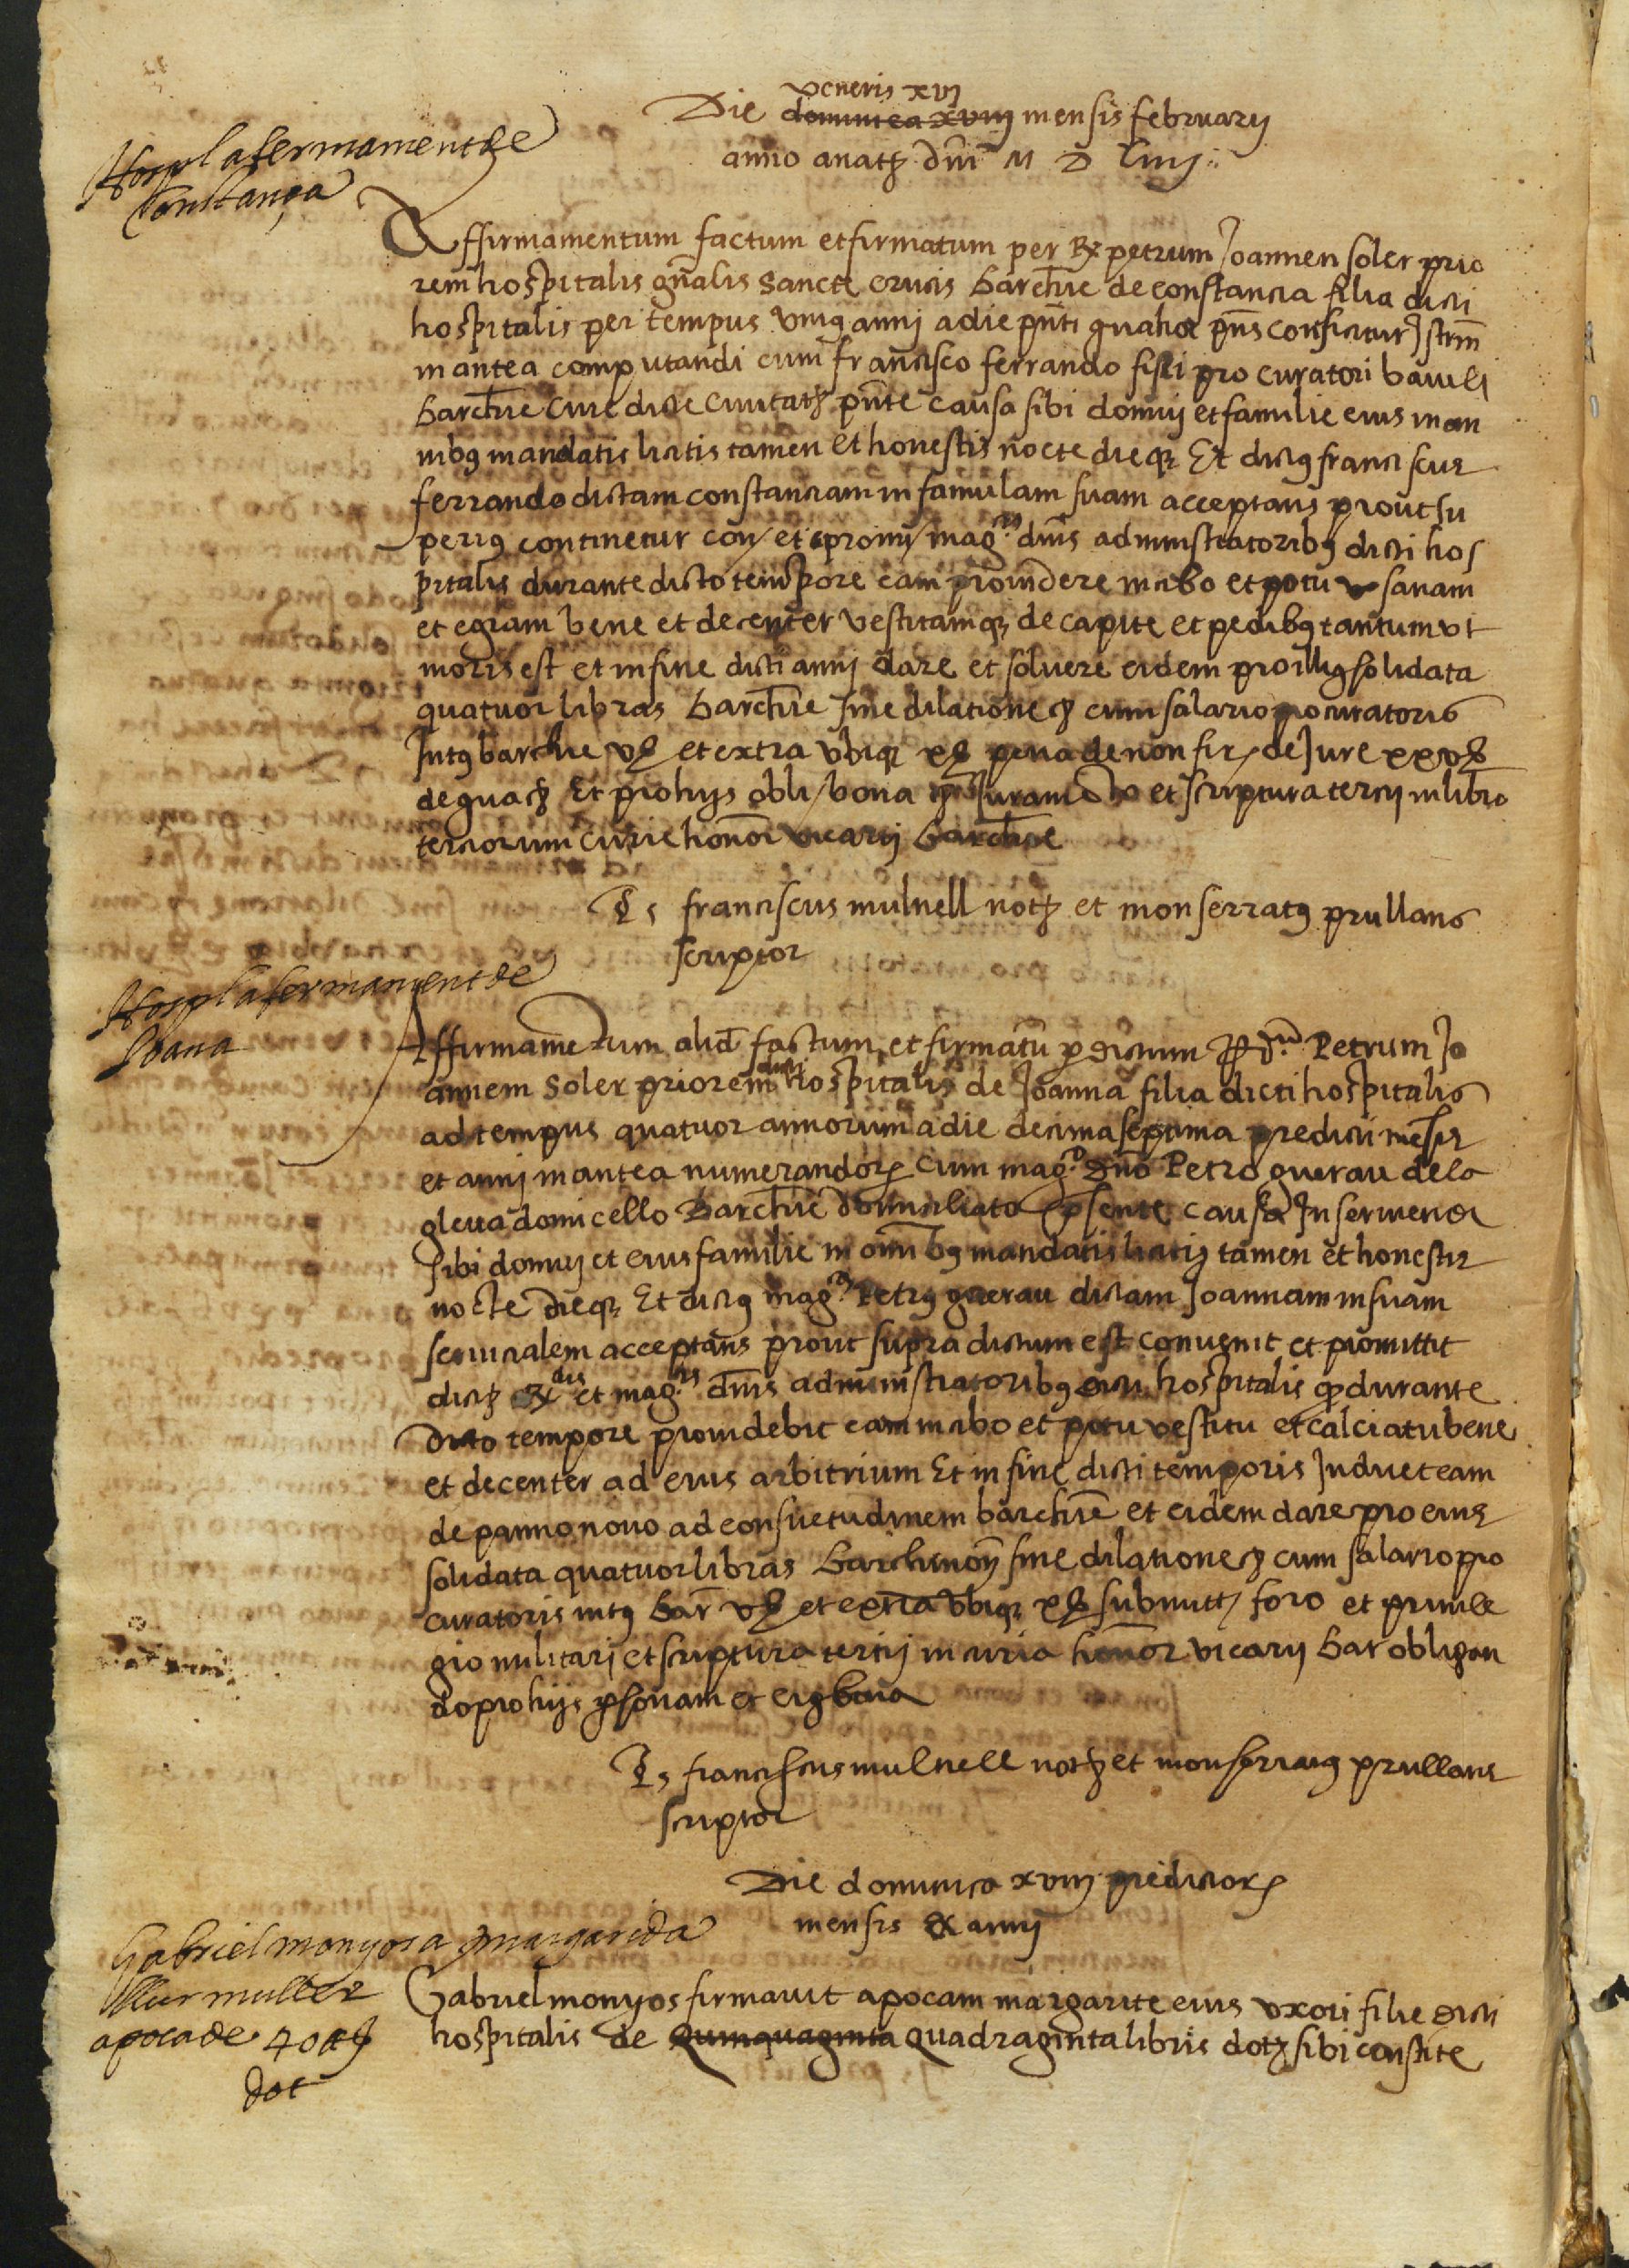 veneris xvj
Die dominica xviij mensis februarij
anno a nat̄z dn̄i M D Liiij
Hosp̄l afermament de
Constança
Affirmamentum factum et firmatum per Rx petrum Joannen soler prio
rem hospitalis gn̄alis sancte crucis Barchn̄e de constancia filia dicti
hospitalis per tempus vniꝰ annj a die pn̄ti qua hoc pn̄s conficitur Jstrm̄
in antea computandi cum francisco ferrando fisci procuratori baiuli
Barchn̄e ciue dicte ciuitatꝫ pn̄te causa sibi domuj et familie eius in om
nibꝰ mandatis licitis tamen et honestis nocte dieqꝫ Et dictꝰ franciscus
ferrando dictam constanciam in famulam suam acceptans prout su
periꝰ continetur con et promi magcis dn̄is administratoribꝰ dicti hos
pitalis durante dicto tempore eam prouidere in cibo et potu sanam
et egram bene et decenter vestitamqꝫ de capite et pedibꝰ tantum vt
moris est et in fine dicti annj dare et soluere eidem pro illiꝰ solidata
quatuor libras Barchn̄e sine dilatione ꝫ cum salario procuratoris
Jntꝰ barchn̄e vß et extra vbiqꝫ xß pena de non fir de Jure xxvß
de qua ꝫ Et pro hijs obli bona Juramento et scriptura tercij in libro
terciorum curie honor̄ vicarij Barchn̄e
Ts franciscus mulnell notꝫ et monserratꝰ prullans
scriptor
Hosp̄l afermament de
Joana
Affirmamentum aliud factum et firmatū ꝑ dictum Rdum Petrum Jo
annem Soler priorem dicti hospitalis de Joanna filia dicti hospitalis
ad tempus quatuor annorum a die decima septima predicti mēsis
et annj in antea numerandorꝫ cum magco dn̄o Petro guerau de la
gleua domicello Barchn̄e domiciliato p̄sente causa Inseruiendi
sibi domuj et eius familie in om̄ibꝰ mandatis licitis tamen et honestis
nocte dieqꝫ Et dictꝰ magcus Petrꝰ guerau dictam Joannam in suam
seruicialem acceptans prout supra dictum est conuenit et promittit
dictꝫ Rdis et magcis dn̄is administratoribꝰ dicti hospitalis ꝙ durante
dicto tempore prouidebit eam in cibo et potu vestitu et calciatu bene
et decenter ad eius arbitrium Et in fine dicti temporis Induet eam
de panno nouo ad consuetudinem barchn̄e et eidem dare pro eius
solidata quatuor libras Barchinon̄ sine dilatione ꝫ cum salario pro
curatoris intꝰ Bar̄ vß et extra vbiqꝫ xß submitt foro et priuile
gio militarj et scriptura tercij in curia honor̄ vicarij Bar obligan
do pro hijs ꝑsonam et eiꝰ bona
Ts franciscus mulnell notꝫ et monserratꝰ prullans
scriptor
Die dominica xviij predictorꝫ
mensis & annj
Gabriel monyos a margarida
sa muller
apoca de 40 ℔
dot
Gabriel monyos firmauit apocam margarite eius vxori filie dicti
hospitalis de Quinquaginta quadraginta libris dotꝫ sibi constite